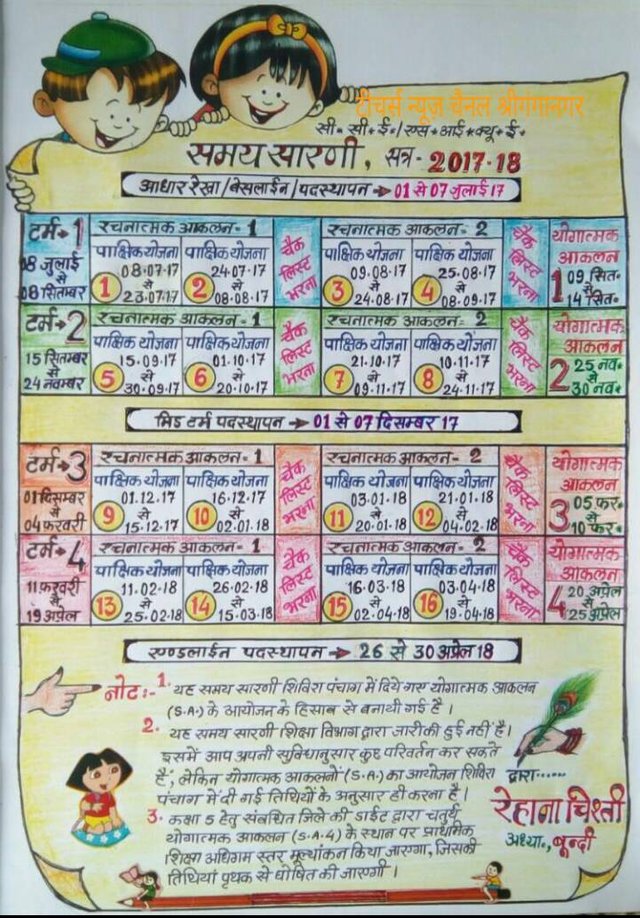 टीचर्स न्यूज़ चैनल श्रीगंगानगर
सी. सी. ई. / एस. आई. क्यू. ई.
समय सारणी, सत्र - 2017-18
आधार रेखा/बेसलाईन/पदस्थापन → 01 से 07 जुलाई 17
टर्म→1
08 जुलाई
से
08 सितम्बर
रचनात्मक आकलन- 1
पाक्षिक योजना
1
08.07.17
से
23.07.17
पाक्षिक योजना
2
24.07.17
से
08.08.17
चैक लिस्ट भरना
रचनात्मक आकलन- 2
पाक्षिक योजना
3
09.08.17
से
24.08.17
पाक्षिक योजना
4
25.08.17
से
08.09.17
चैक लिस्ट भरना
योगात्मक
आकलन
1
09 सित.
से
14 सित.
टर्म→2
15 सितम्बर
से
24 नवम्बर
रचनात्मक आकलन- 1
पाक्षिक योजना
5
15.09.17
से
30.09.17
पाक्षिक योजना
6
01.10.17
से
20.10.17
चैक लिस्ट भरना
रचनात्मक आकलन- 2
पाक्षिक योजना
7
21.10.17
से
09.11.17
पाक्षिक योजना
8
10.11.17
से
24.11.17
चैक लिस्ट भरना
योगात्मक
आकलन
2
25 नव.
से
30 नव.
मिड टर्म पदस्थापन → 01 से 07 दिसम्बर 17
टर्म→3
01 दिसम्बर
से
04 फरवरी
रचनात्मक आकलन- 1
पाक्षिक योजना
9
01.12.17
से
15.12.17
पाक्षिक योजना
10
16.12.17
से
02.01.18
चैक लिस्ट भरना
रचनात्मक आकलन- 2
पाक्षिक योजना
11
03.01.18
से
20.01.18
पाक्षिक योजना
12
21.01.18
से
04.02.18
चैक लिस्ट भरना
योगात्मक
आकलन
3
05 फर.
से
10 फर.
टर्म→4
11 फरवरी
से
19 अप्रेल
रचनात्मक आकलन- 1
पाक्षिक योजना
13
11.02.18
से
25.02.18
पाक्षिक योजना
14
26.02.18
से
15.03.18
चैक लिस्ट भरना
रचनात्मक आकलन- 2
पाक्षिक योजना
15
16.03.18
से
02.04.18
पाक्षिक योजना
16
03.04.18
से
19.04.18
चैक लिस्ट भरना
योगात्मक
आकलन
4
20 अप्रेल
से
25 अप्रेल
एण्डलाईन पदस्थापन → 26 से 30 अप्रेल 18
नोट:- 1. यह समय सारणी शिविरा पंचाग में दिये गए योगात्मक आकलन
(S.A.) के आयोजन के हिसाब से बनायी गई है।
2. यह समय सारणी शिक्षा विभाग द्वारा जारी की हुई नहीं है।
इसमें आप अपनी सुविधानुसार कुछ परिवर्तन कर सकते
है, लेकिन योगात्मक आकलनों (S.A.) का आयोजन शिविरा
पंचाग में दी गई तिथियों के अनुसार ही करना है।
3. कक्षा 5 हेतु संबधित जिले की डाईट द्वारा चतुर्थ
योगात्मक आकलन (S.A-4) के स्थान पर प्राथमिक
शिक्षा अधिगम स्तर मूल्यांकन किया जाएगा, जिसकी
तिथियां पृथक से घोषित की जाएगी।
द्वारा......
रेहाना चिश्ती
अध्या., बून्दी